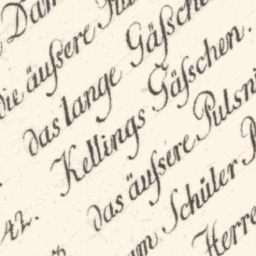 die äußere
das lange Gäßchen
Kellings Gäßchen.
42. das äußere Pulsni
Schüler
Herre